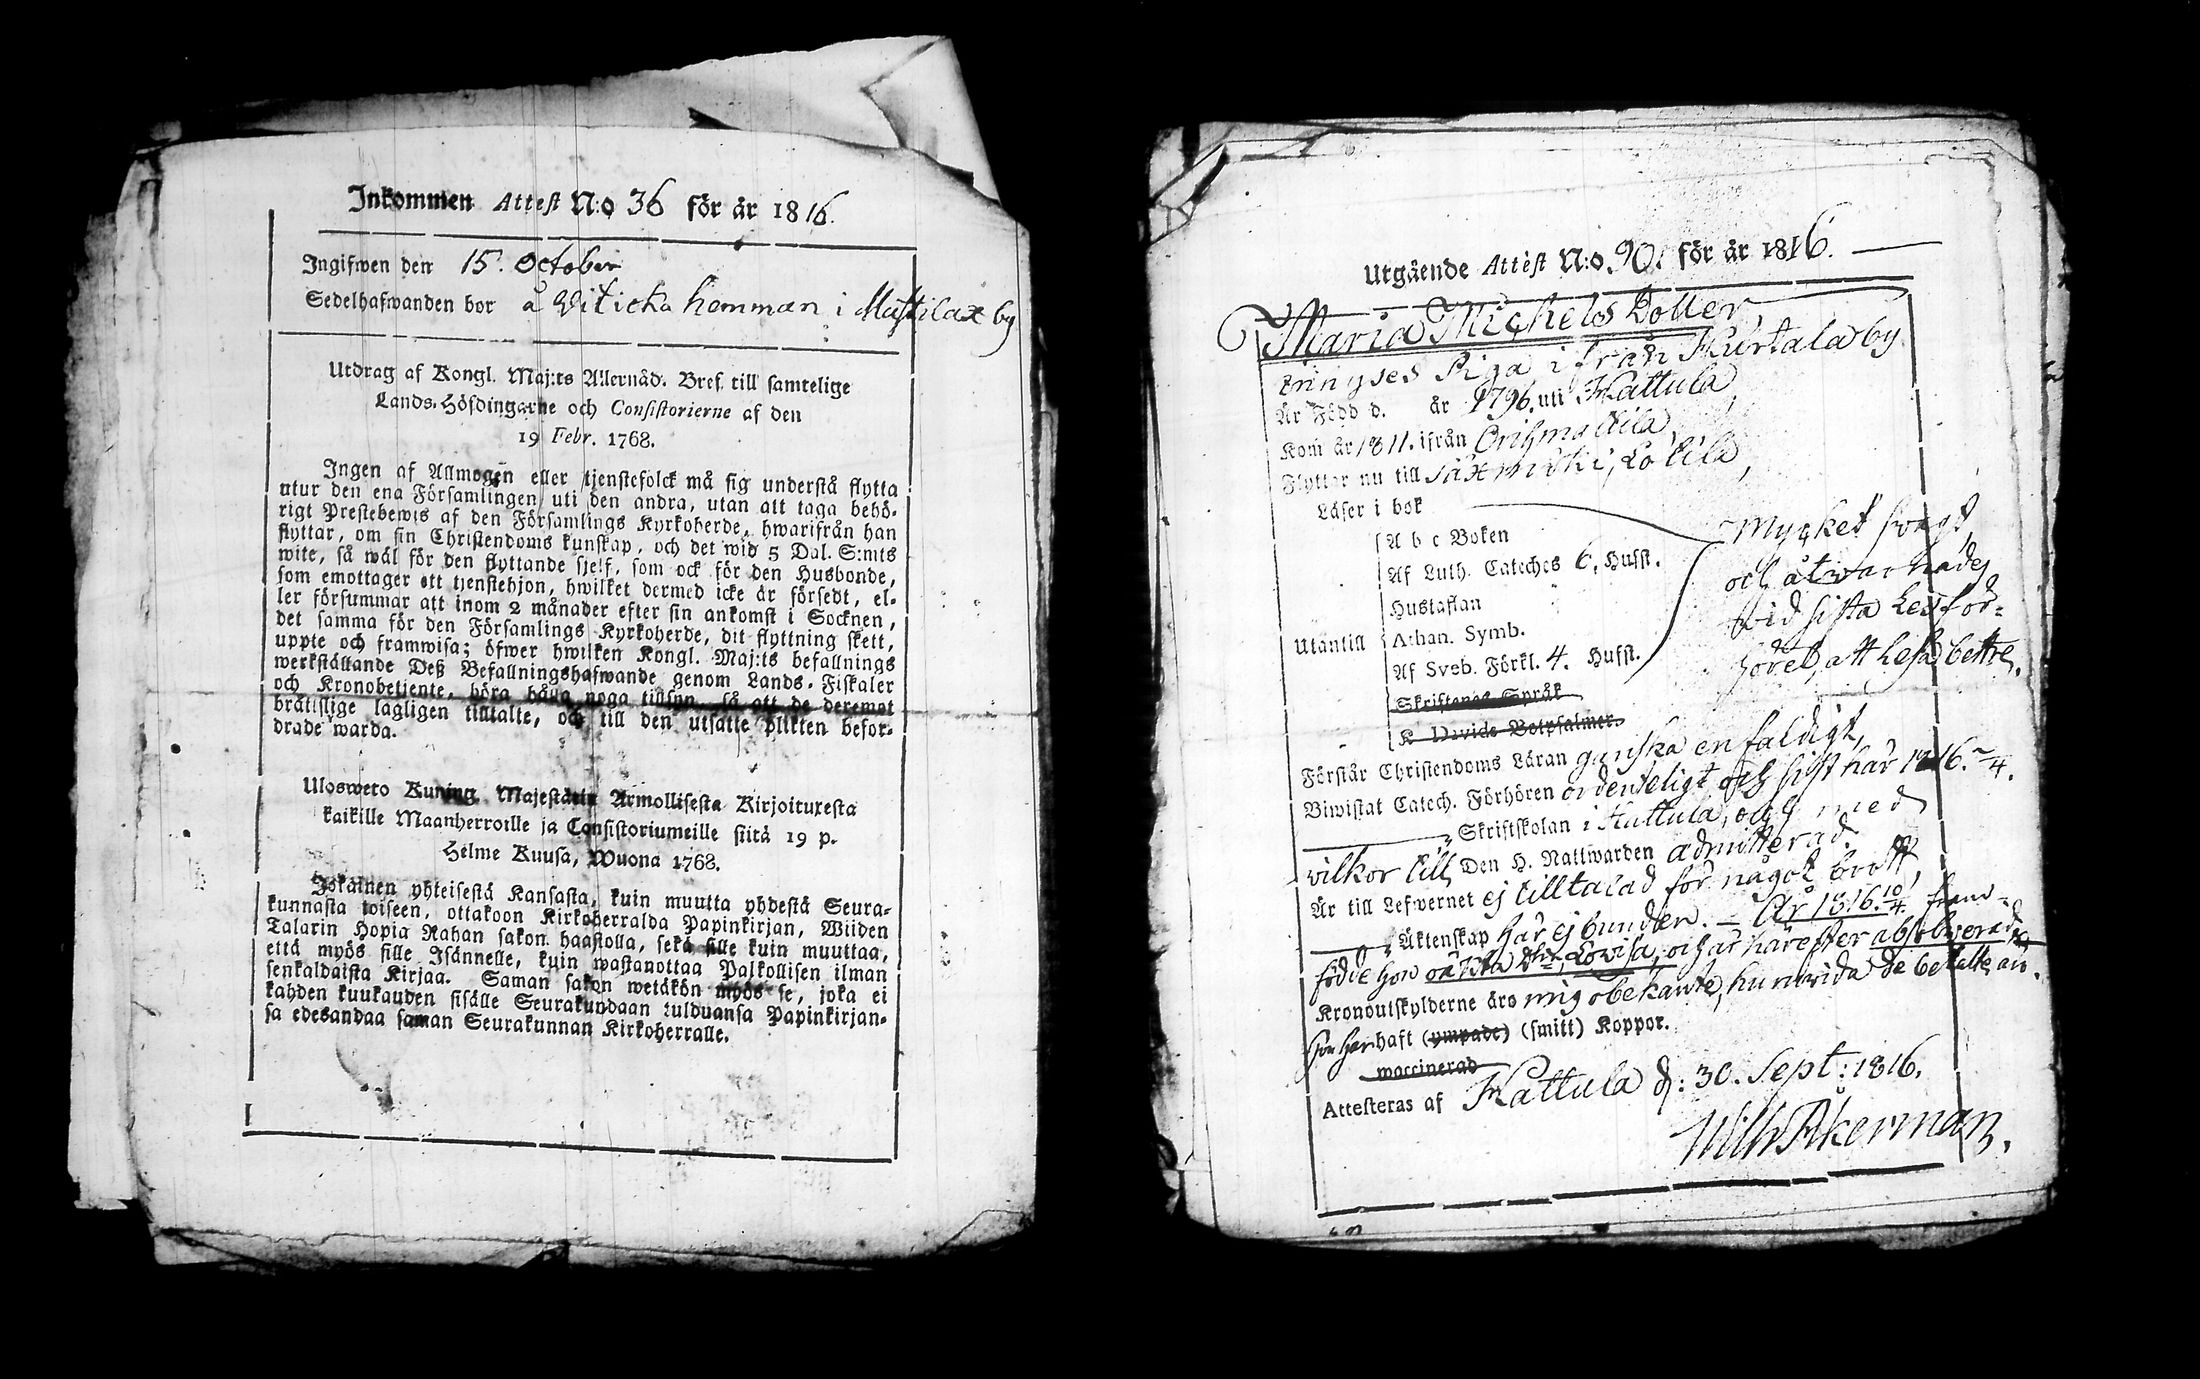 Inkommen Attest N:o 36 för år 1816.
Ingifwen den 15. October
Sedelhafwanden bor å Witicka hemman i Mustilax by
Utdrag af Kongl. Maj:ts Allernåd. Bref till samtelige
Lands-Höfdingarne och Consistorierne af den
19 Febr. 1768.
Ingen af Allmogen eller tjenstefolck må sig understå flytta
utur den ena Församlingen uti den andra, utan att taga behö-
rigt Prestebewis af den Församlings Kyrkoherde, hwarifrån han
flyttar, om sin Christendoms kunskap, och det wid 5 Dal. S:mts
wite, så wäl för den flyttande sjelf, som ock för den Husbonde,
som emottager ett tjenstehjon, hwilket dermed icke är försedt, el-
ler försummar att inom 2 månader efter sin ankomst i Socknen,
det samma för den Församlings Kyrkoherde, dit flyttning skett,
uppte och framwisa; öfwer hwilken Kongl. Maj:ts befallnings
werkställande Deß Befallningshafwande genom Lands-Fiskaler
och Kronobetjente, böra hålla noga tillsyn, så att de deremot
bråtislige lagligen tilltalte, och till den utsatte plikten befor-
drade warda.
Uloswero Kuning. Majestätin Armollisesta Kirjoituxesta
kaikille Maanherroille ja Consistoriumeille siitä 19 p.
Helme Kuusa, Wuona 1768.
Jokainen yhteisestä Kansasta, kuin muutta yhdestä Seura-
kunnasta toiseen, ottakoon Kirkoherralda Papinkirjan, Wiiden
Talarin Hopia Rahan sakon haastolla, sekä sille kuin muuttaa,
että myös sille Isännelle, kuin wastanottaa Palkollisen ilman
senkaldaista Kirjaa. Saman sakon wetäkön myös se, joka ei
kahden kuukauden sisälle Seurakundaan tulduansa Papinkirjan-
sa edesandaa saman Seurakunnan Kirkoherralle.
Utgående Attest N:o 90. för år 1816.
Maria Michels Dotter,
Piga ifrån Kurtala by
Är Född d. år 1796. uti Hattula
Kom år 1811. ifrån Orihmattila
Flyttar nu till Säxmäki, Lotila,
Läser i bok
A b c Boken
Af Luth. Cateches 6. Hufst.
Hustaflan
Utantill
Athan. Symb.
Af Sveb. Förkl. 4. Hufst.
Skriftenes Språk
K Davids Botpsalmer.
Mycket svagt,
och åtvarnades
vid sista Läsför-
höret, att läsa bättre.
Förstår Christendoms Läran ganska enfaldigt,
Biwistat Catech. Förhören ordenteligt och sist här 1816.
Skriftskolan i Hattula, och med
vilkor till Den H. Nattwarden admitterad.
Är till Lefwernet ej tilltalad för något brott,
Äktenskap har ej bunden. – År 1816. 10/4 fram-
födde hon oäkta Dtr. Lowisa, och är härefter absolverad
Kronoutskylderne äro mig obekante, huruvida de betalte äro.
hon har haft (ympade) (smitt) Koppor.
waccinerad
Attesteras af Hattula d: 30. Sept: 1816.
Wilh Åkerman.